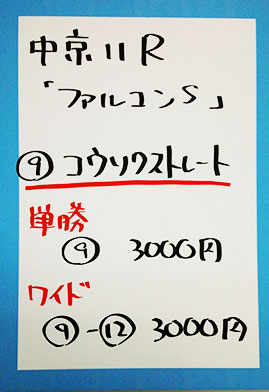 中京11R
「ファルコンS」
⑨ コウソクストレート
単勝
⑨ 3000円
ワイド
⑨-⑫ 3000円